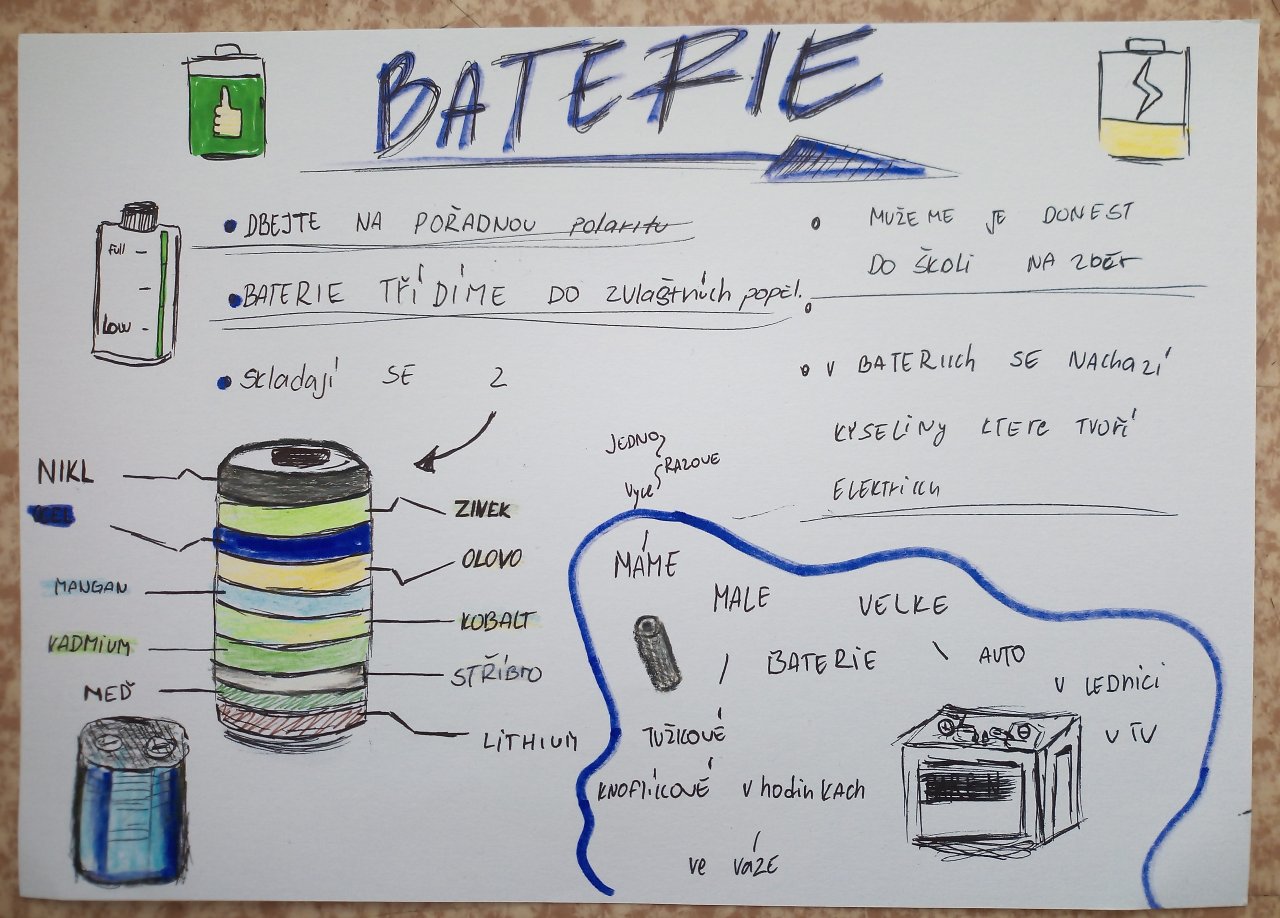 BATERIE
FULL
LOW
DBEJTE NA POŘADNOU polaritu
BATERIE TŘÍDÍME DO zvlaštních popel.
skladají SE Z
MUŽEME JE DONEST
DO ŠKOLI NA zběr
V BATERIICH SE NAChazí
KYSELINY KTERE TVOŘÍ
NIKL
ZINEK
OLOVO
MANGAN
KOBALT
KADMIUM
STŘÍBRO
MEĎ
LITHIUM
JEDNO
RAZOVE
Vyce
MÁME
MALE
VELKE
BATERIE
AUTO
V LEDNICI
V TV
TUŽKOVÉ
KNOFLÍKOVÉ v hodinKAch
ve váZE